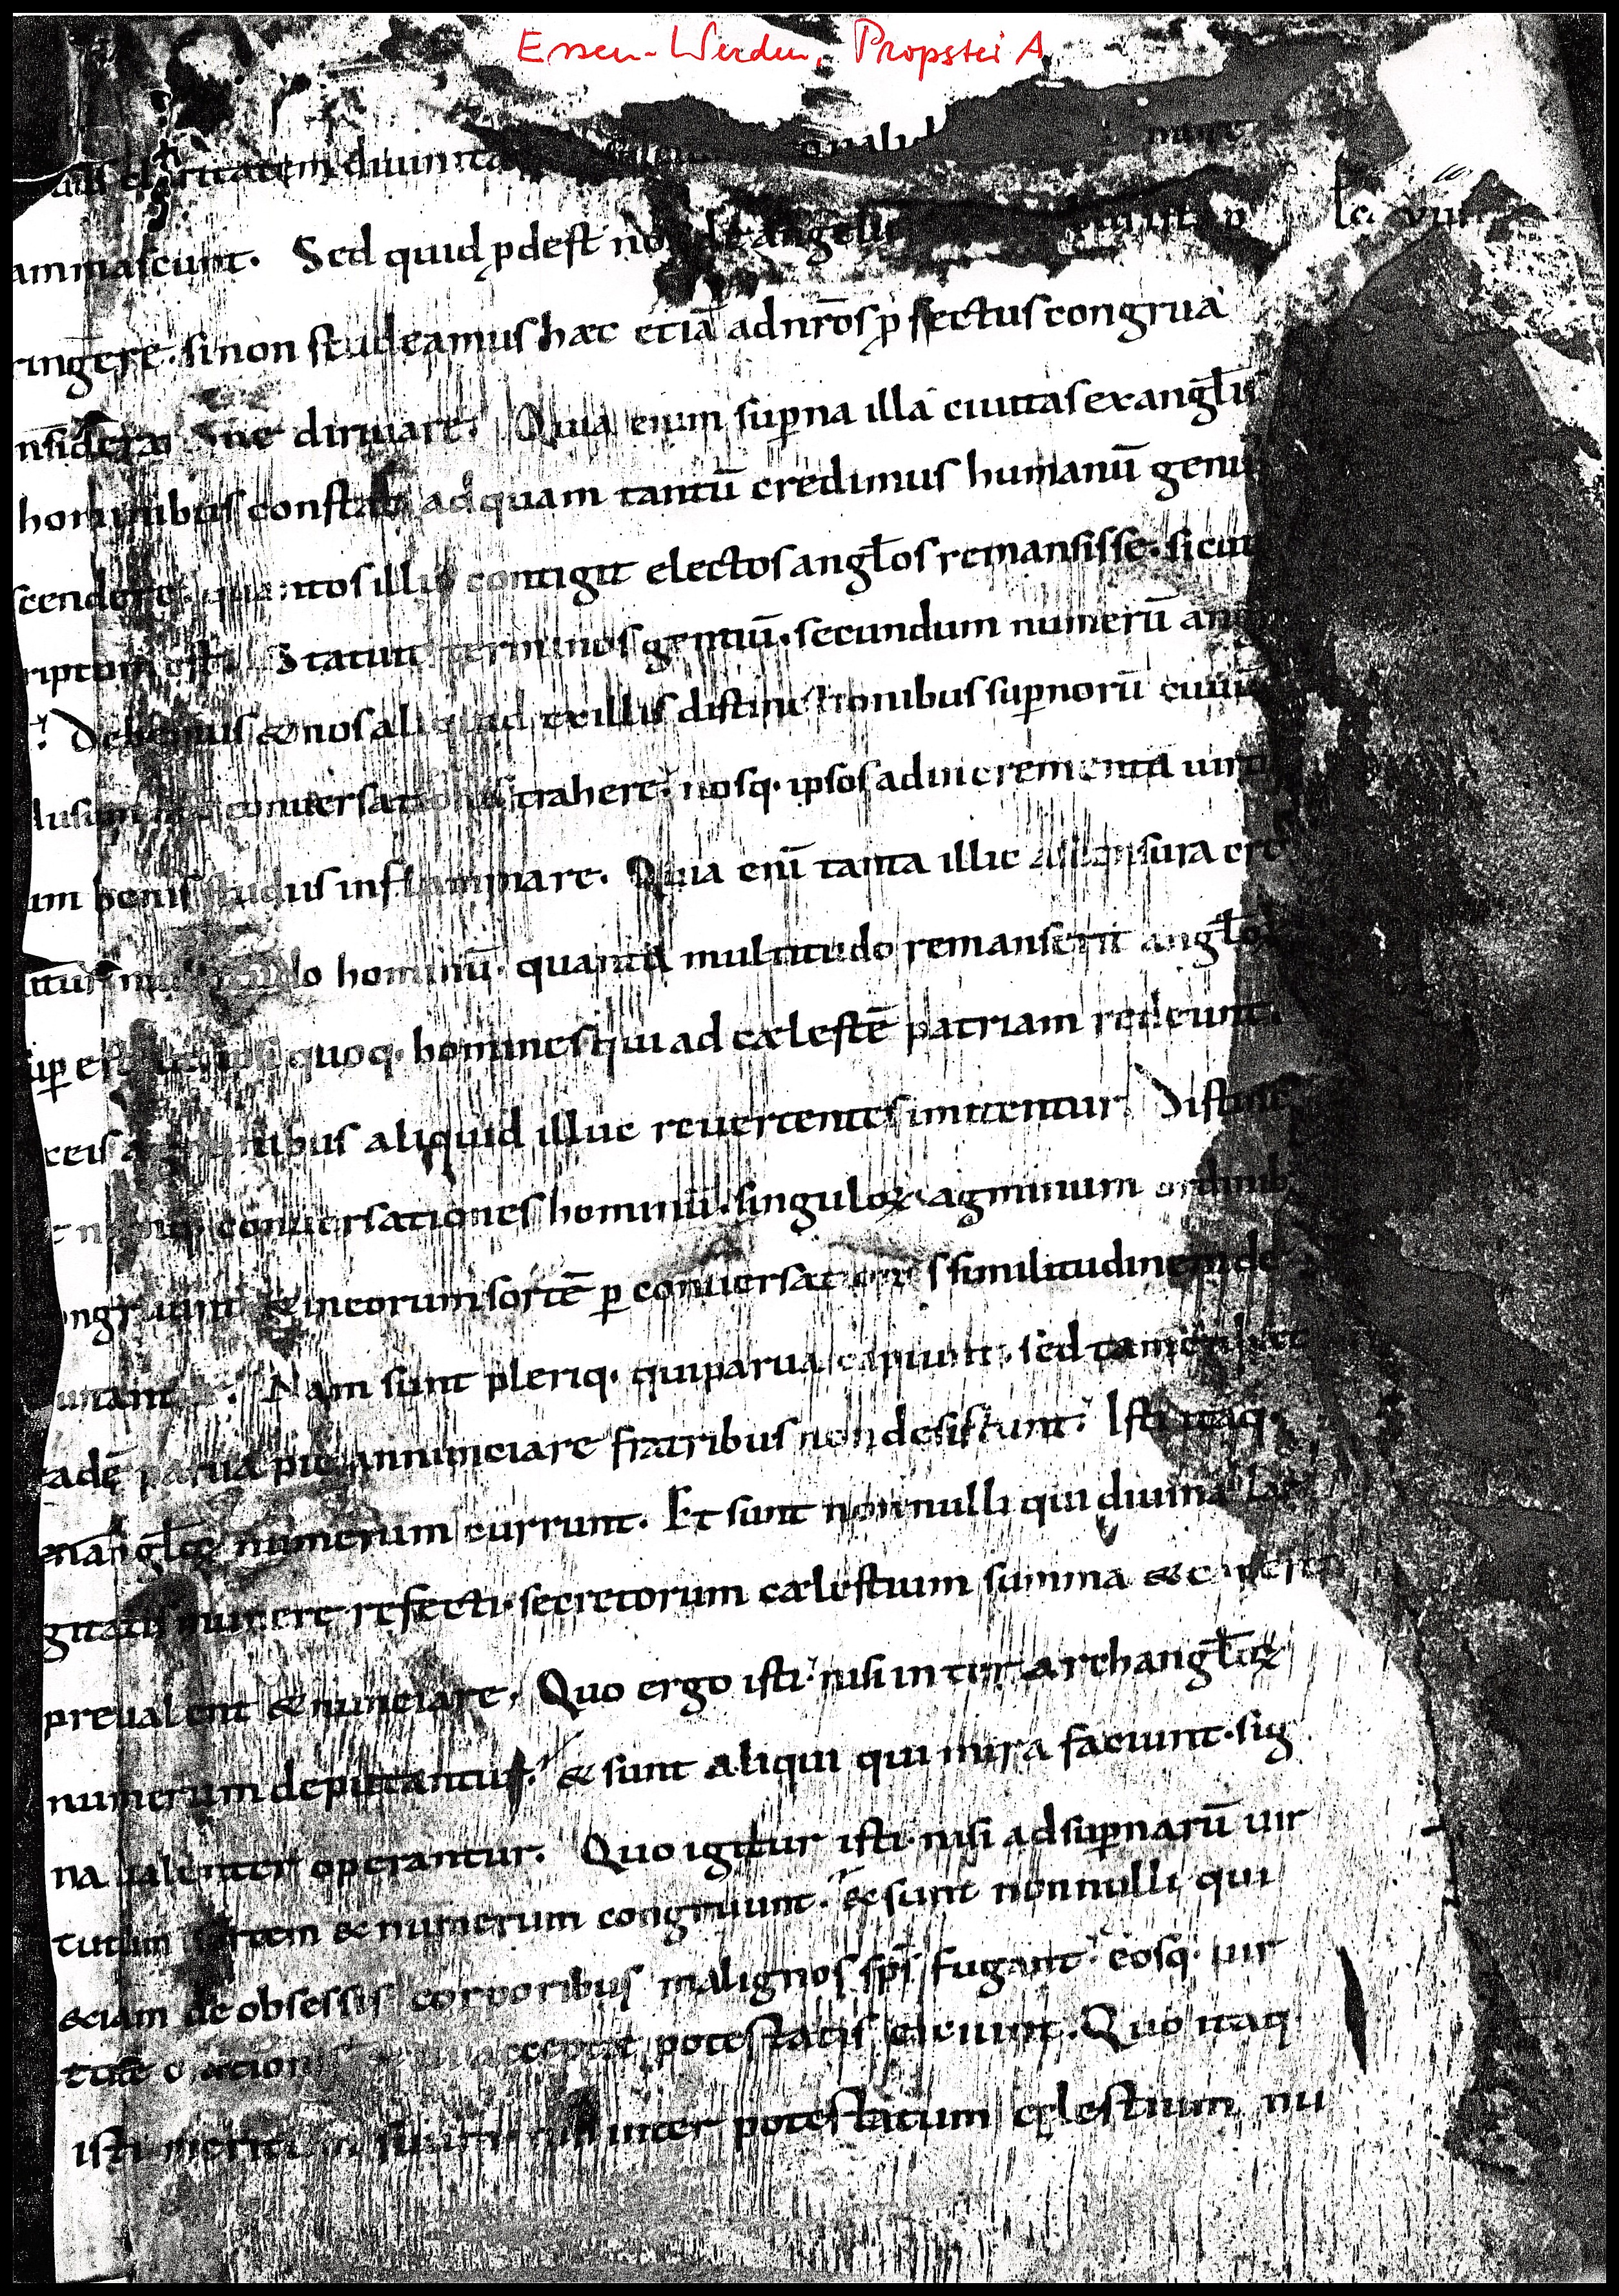 Essen-Werden, Propstei A
claritatem diuinita
ammascunt. Sed quid ꝓdest nos de angelis
ringere. si non studeamus hæc etiā ad nr̄os ꝓfectus congrua
ne diriuare. Quia enim suꝑna illa ciuitas ex angl̄is
hominibus constat ad quam tantū credimus humanū genus
scendere. quantos illic contigit electos angl̄os remansisse. sicut
riptum est. Statuit terminos gentiū. secundum numerū ang
Debemus & nos aliquid ex illis distinctionibus suꝑnorū ciuiū
conuersationis trahere. nosq. ipsos ad incrementa uirtu
um bonis studiis inflammare. Quia enī tanta illic ascensura cre
itur multitudo hominū. quanta multitudo remansit angl̄oꝝ
suꝑ est quoq. homines qui ad cælestē patriam redeunt.
ex eis agminibus aliquid illuc reuertentes imitentur. Distinc
conuersationes hominū. singuloꝝ agminum ordinib
ongruunt & in eorum sortē ꝑ conuersationis similitudinem de
utant Nam sunt pleriq. qui parua capiunt. sed tamen hæc
eadē parua pie annunciare fratribus non desistunt. Isti itaq.
in angl̄oꝝ numerum currunt. Et sunt nonnulli qui diuinæ lar
gitatis munere refecti. secretorum cælestium summa & capere
preualent & nunciare. Quo ergo isti. nisi inter archangl̄oꝝ
numerum deputantur. & sunt aliqui qui mira faciunt. sig
na ualenter operantur. Quo igitur isti. nisi ad suꝑnarū uir
tutum sortem & numerum congruunt. & sunt nonnulli qui
&iam de obsessis corporibus malignos sp̄s fugant. eosq. uir
tute orationis & ui acceptæ potestatis eiciunt. Quo itaq
isti meritum suum nisi inter potestatum cęlestium nu